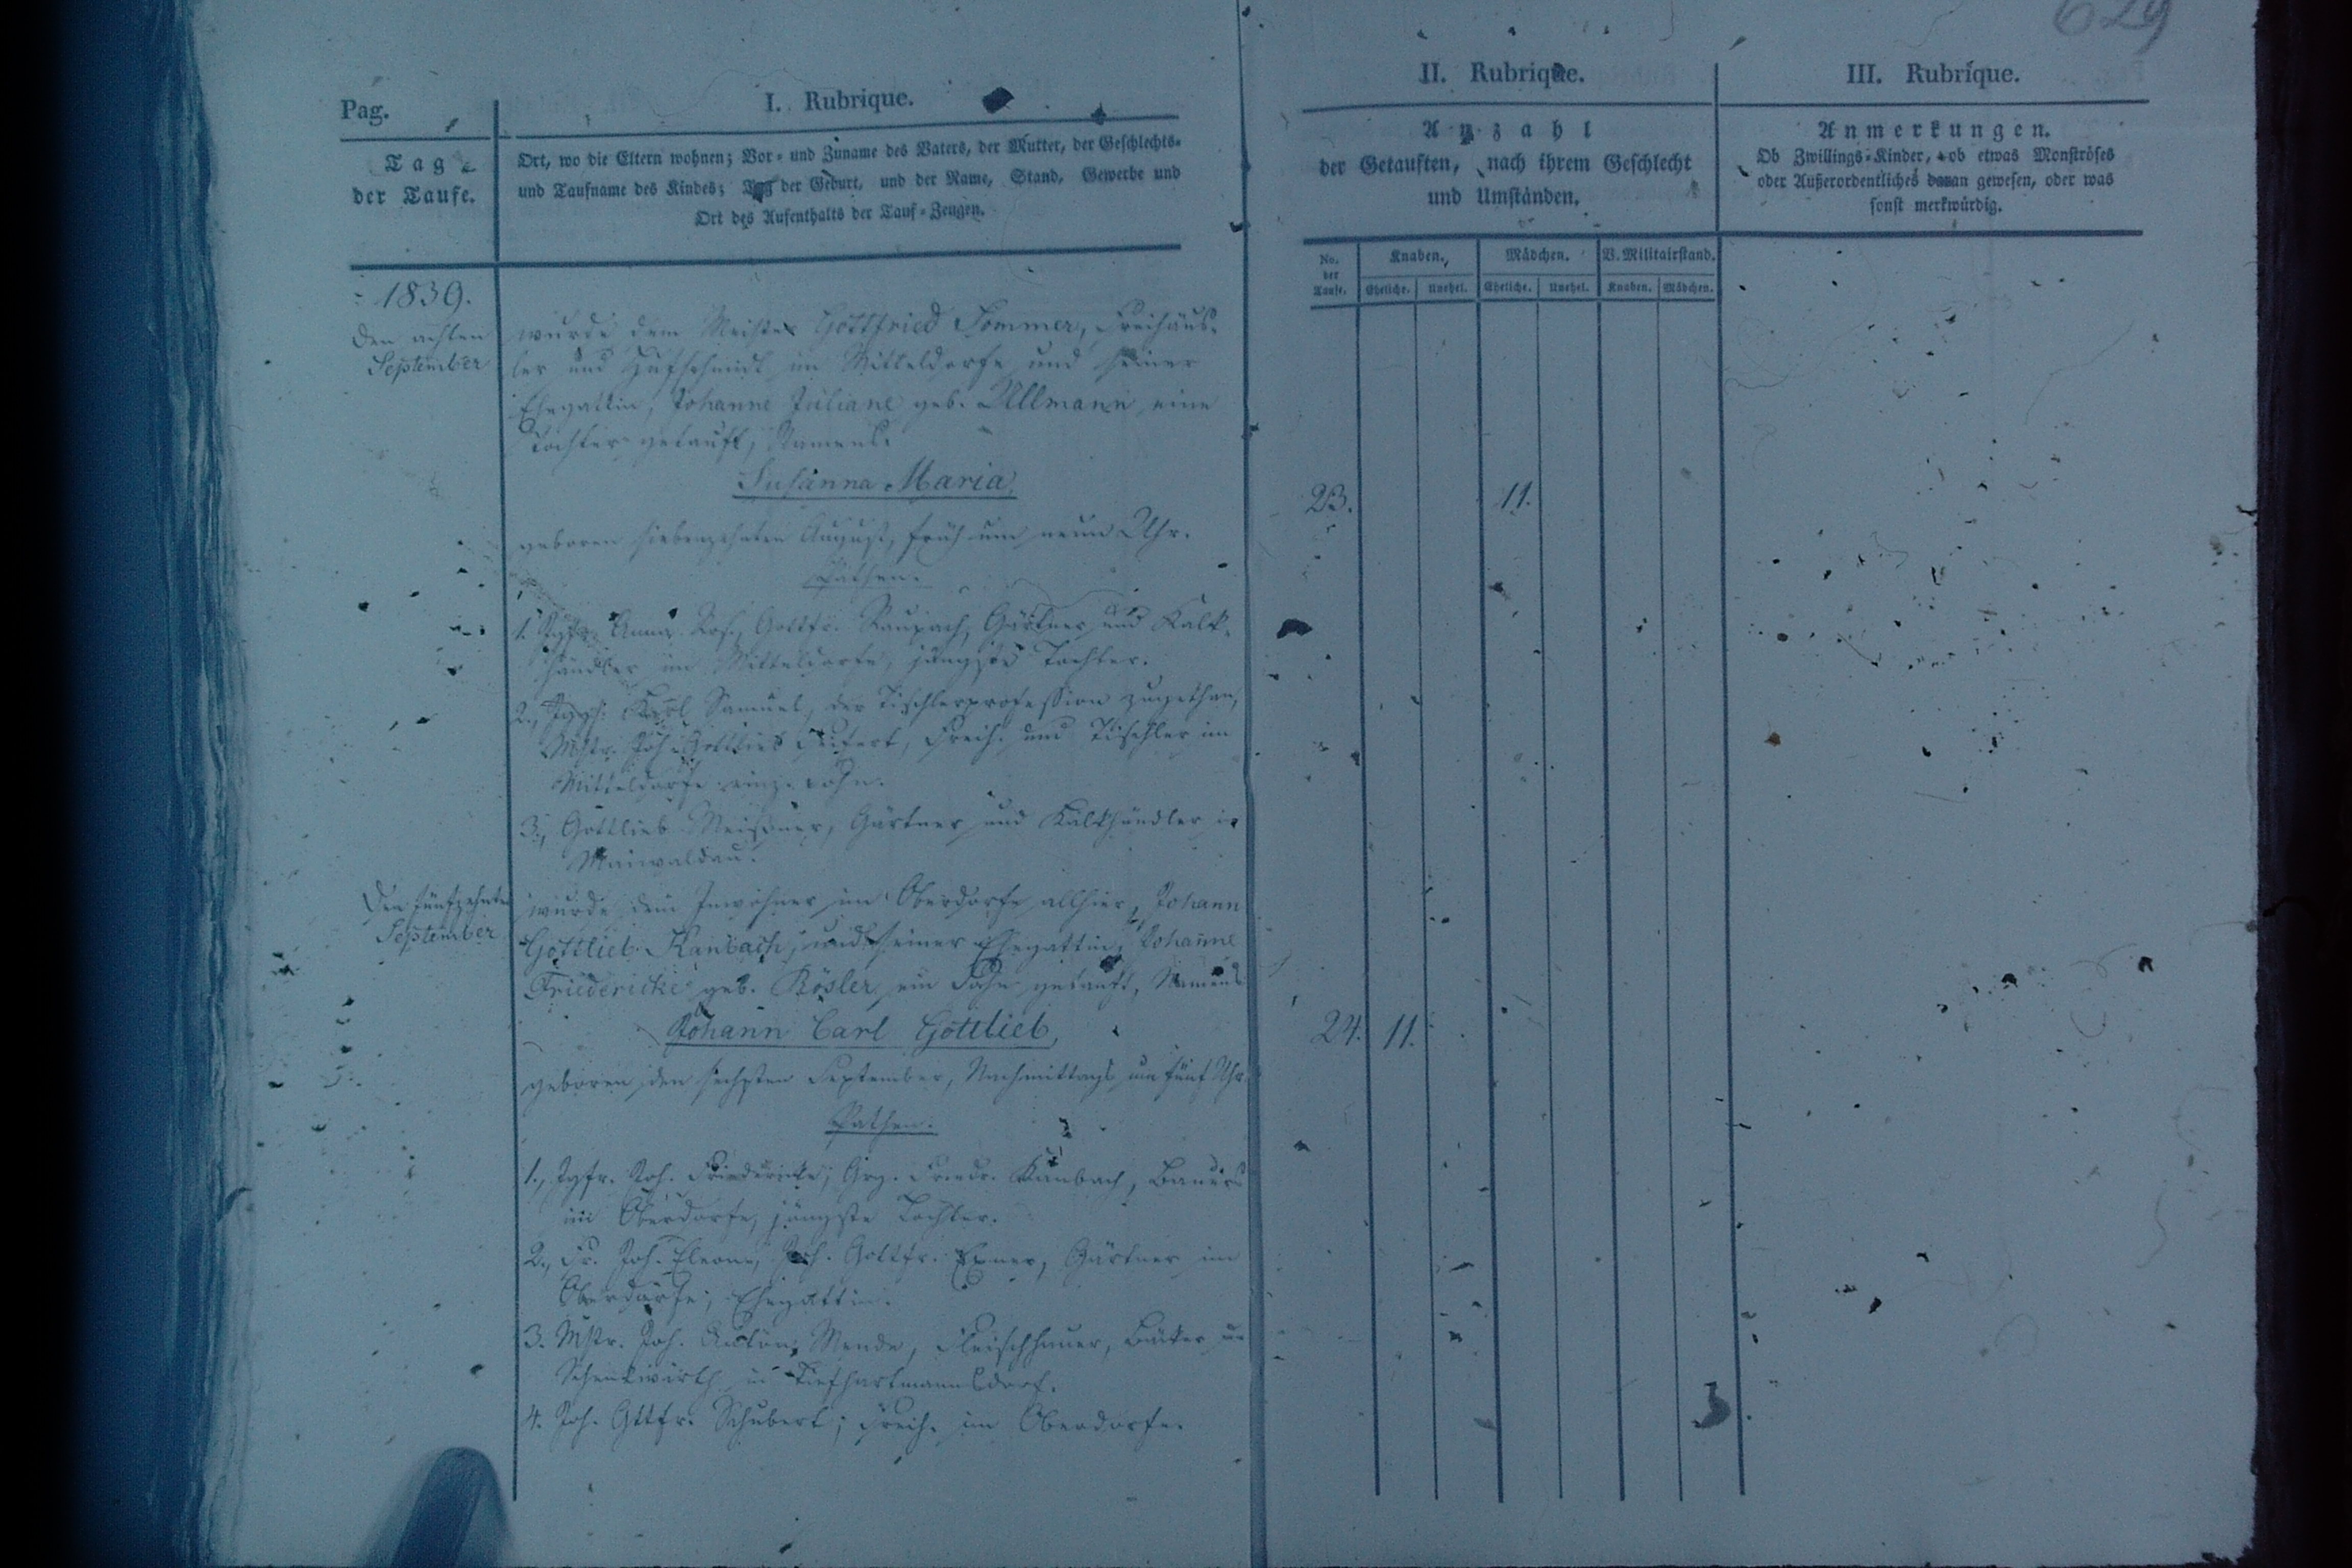 629
Pag.
I. Rubrique.
II. Rubrique.
III. Rubrique.
Tag
der Taufe.
Ort, wo die Eltern wohnen; Vor- und Zuname des Vaters, der Mutter, der Geschlechts-
und Taufname des Kindes; Tag der Geburt, und der Name, Stand, Gewerbe und
Ort des Aufenthalts der Tauf-Zeugen.
Anzahl
der Getauften, nach ihrem Geschlecht
und Umständen.
Anmerkungen.
Ob Zwillings-Kinder, ob etwas Monströses
oder Außerordentliches daran gewesen, oder was
sonst merkwürdig.
No.
der
Taufe.
Knaben.
Mädchen.
V. Militairstand.
Eheliche.
Unehel.
Eheliche.
Unehel.
Knaben.
Mädchen.
1839.
den achten
September
wurde dem Meister Gottfried Sommer, Freihäus-
ler und Hufschmidt im Mitteldorfe und seiner
Ehegattin, Johanne Juliane geb. Ullmann eine
Tochter getauft, Namens:
Susanna Maria,
23.
11.
geboren siebenzehnten August, früh um neun Uhr.
Pathen:
1. Jgfr. Anna Ros., Gottfr. Raupach, Gärtner und Kalk-
händler im Mitteldorfe, jüngste Tochter.
2., Jggs. Karl Samuel, der Tischlerprofession zugethan,
Mstr. Joh. Gottlieb Seifert, Freih. und Tischler im
Mitteldorfe einz. Sohn.
3., Gottlieb Meißner, Gärtner und Kalkhändler in
Maiwaldau.
Den fünfzehnten
September
wurde dem Inwohner im Oberdorfe allhier, Johann
Gottlieb Kambach, und seiner Ehegattin, Johanne
Friedericke geb. Rösler ein Sohn getauft, Namens
Johann Carl Gottlieb,
24.
11.
geboren den sechsten September, Nachmittags um fünf Uhr
Pathen:
1., Jgfr. Joh. Friedericke, Friedr. Kambach, Bauers
im Oberdorfe, jüngste Tochter.
2., Fr. Joh. Eleone, Joh. Gottfr. Exner, Gärtner im
Oberdorfe, Ehegattin.
3. Mstr. Joh. Anton Mende, Fleischhauer, Bäcker un
Schenkwirth in Tiefhartmannsdorf.
4. Joh. Gttfr. Schubert, Freih. im Oberdorfe.